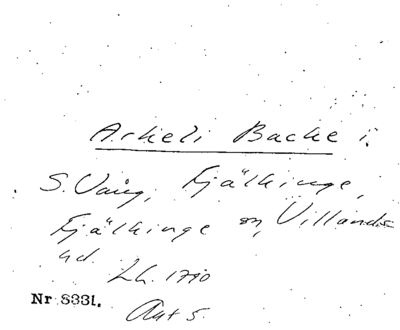 Arkeli Backe i
S. Vång, Fjälkinge,
Fjälkinge sn, Villands
hd. Lh. 1770
Akt 5.
Nr 8331.